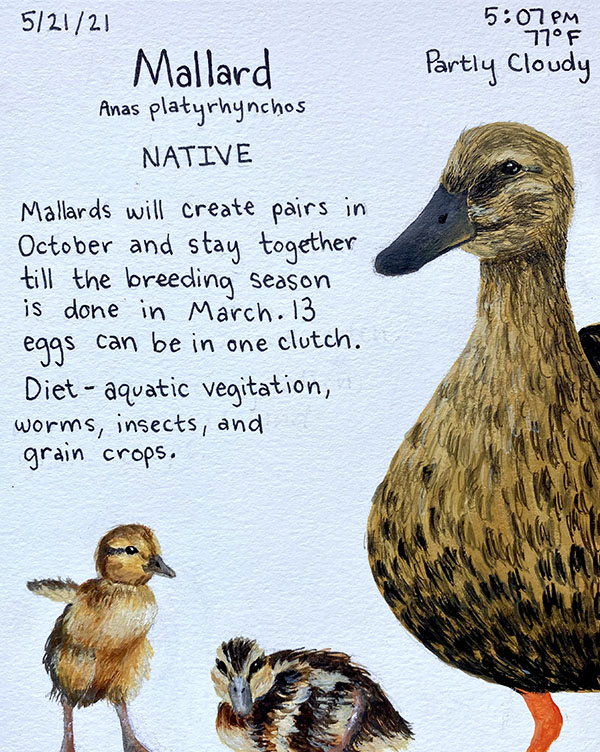 5/21/21
5:07 PM
77°F
Partly Cloudy
Mallard
Anas platyrhynchos
NATIVE
Mallards will create pairs in
October and stay together
till the breeding season
is done in March. 13
eggs can be in one clutch.
Diet - aquatic vegitation,
worms, insects, and
grain crops.